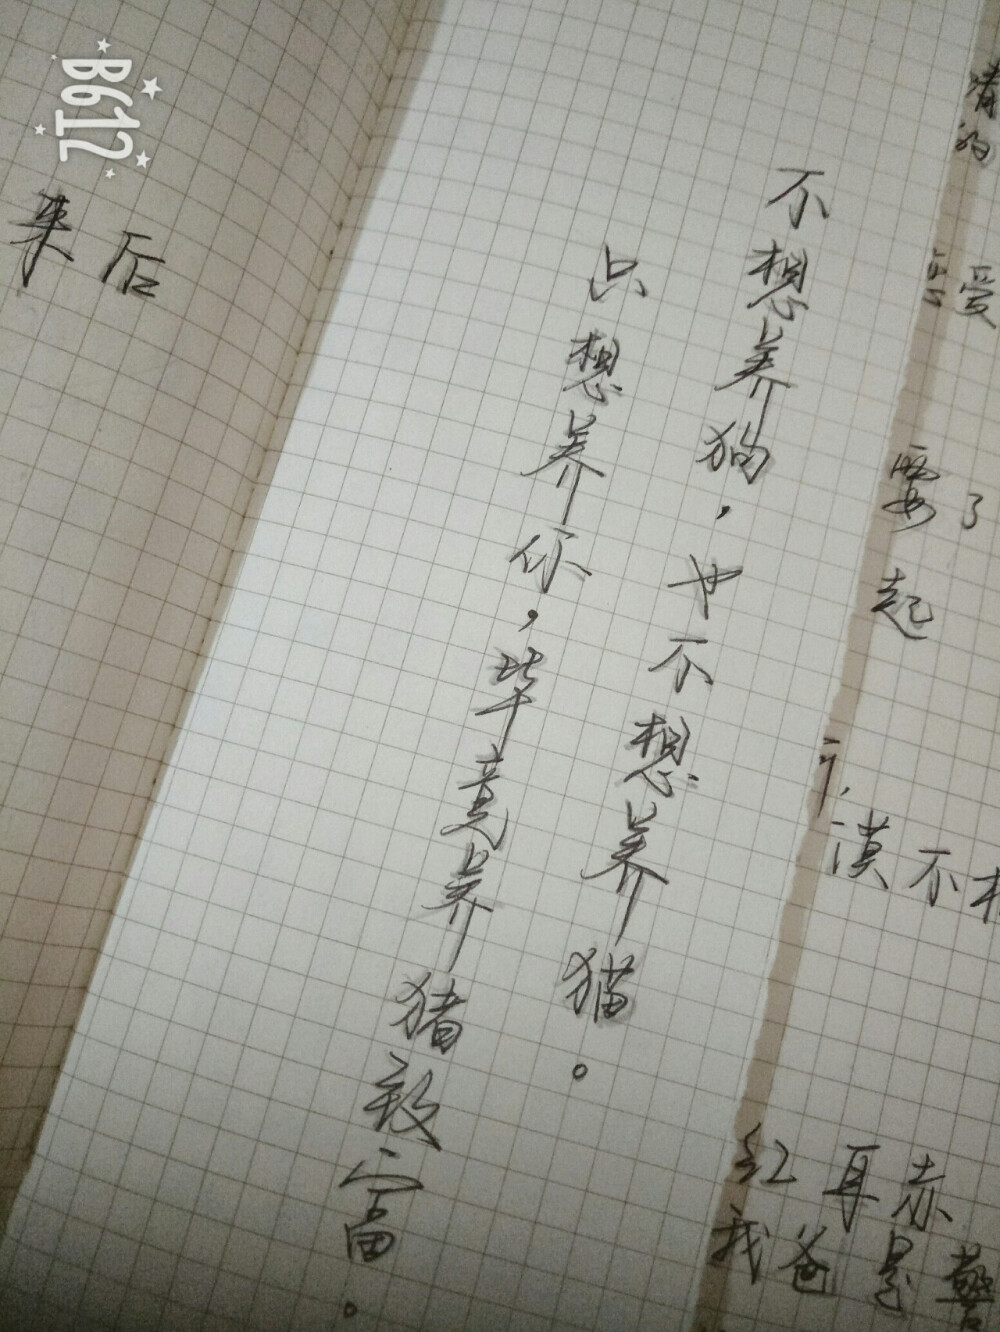 B612
不想养狗，也不想养猫。
只想养你，毕竟养猪致富。
来后
情的
爱
要了
起
漠不相
红耳赤
我爸是警